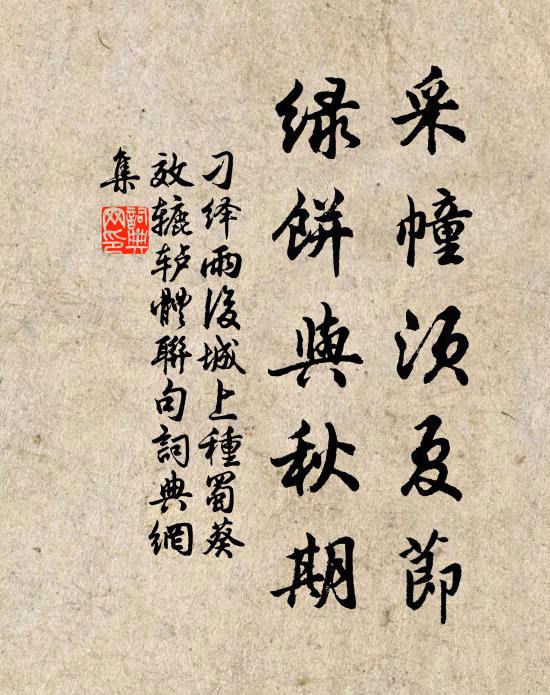 采幢须夏節
绿餅與秋期
刁绎雨後城上種蜀葵
效辘轳體聯句詞典網
集
詞典网印